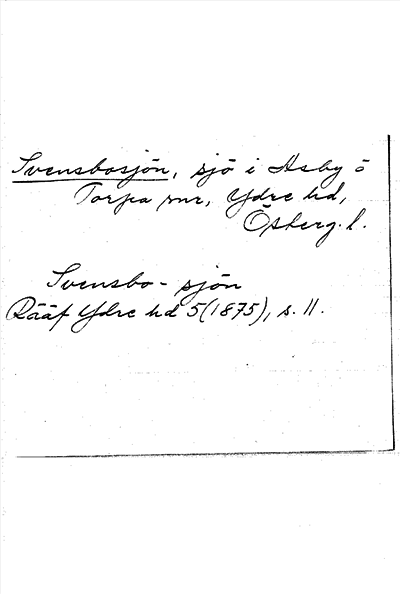 Svensbosjön, sjö i Asby o
Torpa snr, Ydre hd,
Österg. l.
Svensbo-sjön
Rääf Ydre hd 5(1875), s. 11.